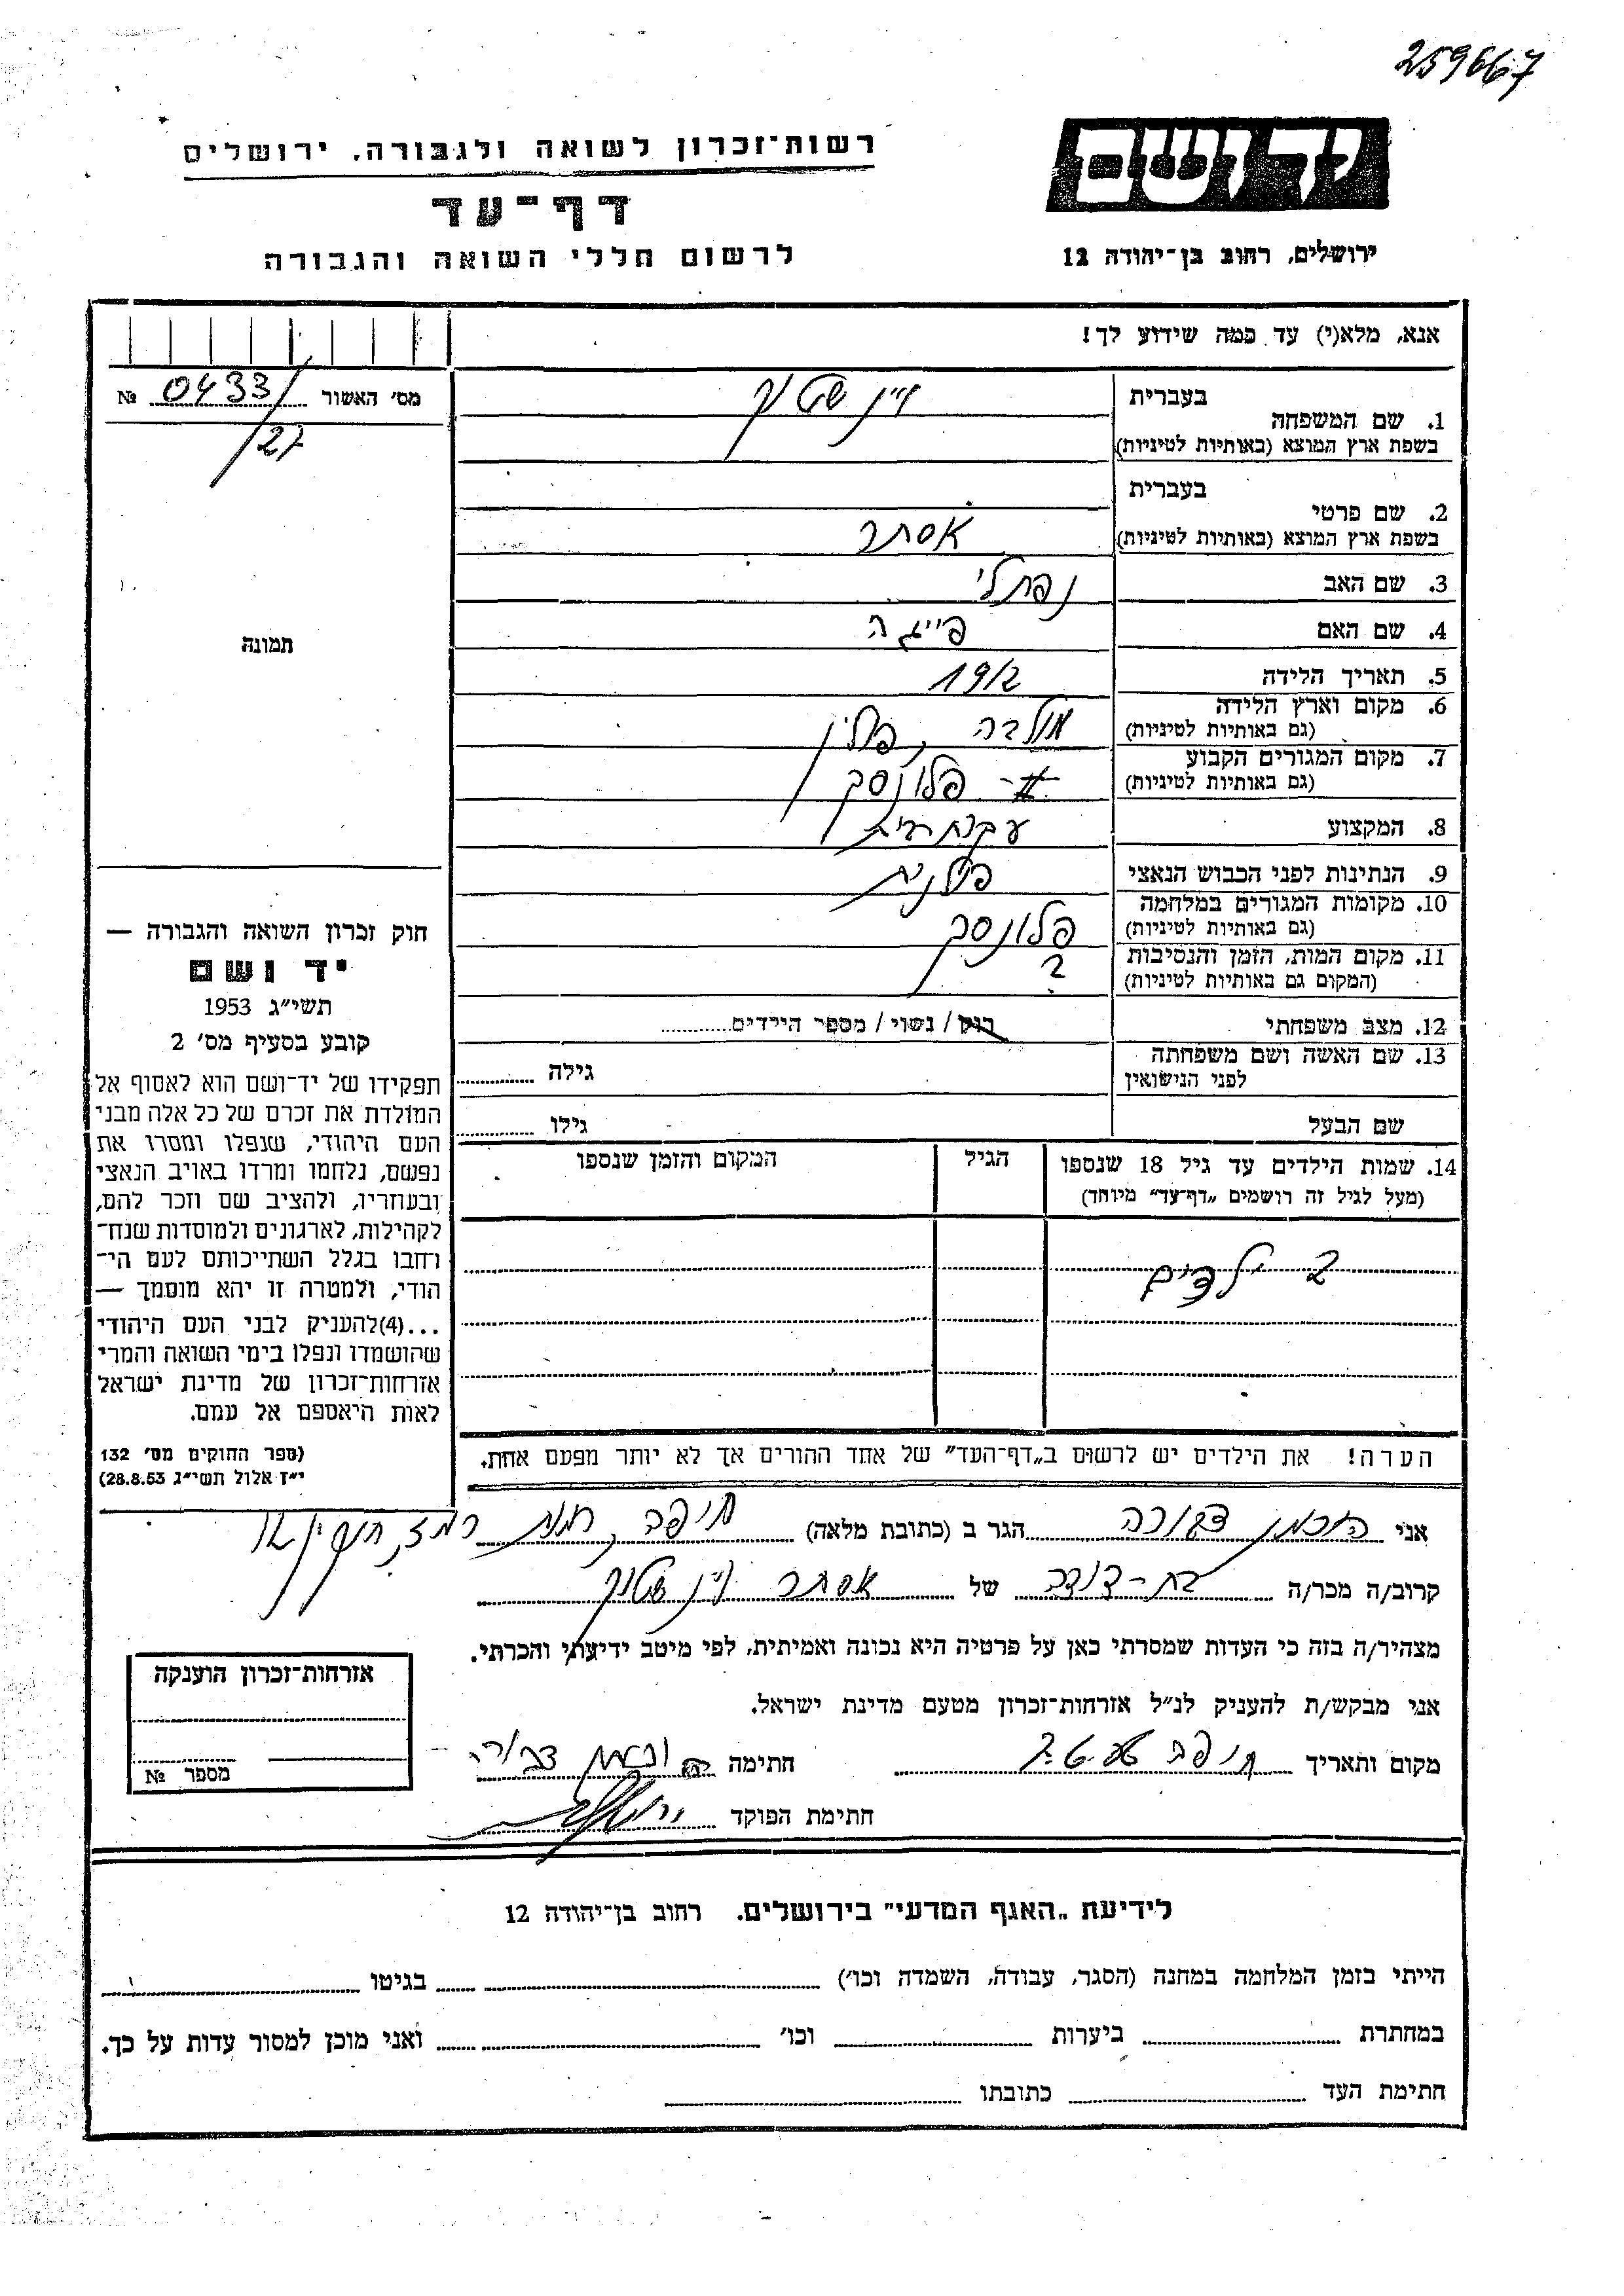 259667
יד ושם
רשות־זכרון לשואה ולגבורה, ירושלים
דף־עד
לרשום חללי השואה והגבורה
ירושלים, רחוב בן־יהודה 12
אנא, מלא(י) עד כמה שידוע לך!
מס׳ האשור 0433/ №
/27
תמונה
1. שם המשפחה
בעברית
בשפת ארץ המוצא (באותיות לטיניות)
2. שם פרטי
בעברית
בשפת ארץ המוצא (באותיות לטיניות) אסתר
3. שם האב נפתלי
4. שם האם פייגה
5. תאריך הלידה 1912
6. מקום וארץ הלידה
(גם באותיות לטיניות) פולין
7. מקום המגורים הקבוע
(גם באותיות לטיניות) פלונסק
8. המקצוע עקרת בית
9. הנתינות לפני הכבוש הנאצי פולנית
10. מקומות המגורים במלחמה
(גם באותיות לטיניות) פלונסק
11. מקום המות, הזמן והנסיבות ?
(המקום גם באותיות לטיניות)
12. מצב משפחתי רווק / נשוי / מספר הילדים
13. שם האשה ושם משפחתה
לפני הנישואין גילה
שם הבעל גילו
14. שמות הילדים עד גיל 18 שנספו הגיל המקום והזמן שנספו
(מעל לגיל זה רושמים „דף־עד״ מיוחד)
2 ילדים
הערה! את הילדים יש לרשום ב„דף־העד״ של אחד ההורים אך לא יותר מפעם אחת.
חוק זכרון השואה והגבורה —
יד ושם
תשי״ג 1953
קובע בסעיף מס׳ 2
תפקידו של יד־ושם הוא לאסוף אל
המולדת את זכרם של כל אלה מבני
העם היהודי, שנפלו ומסרו את
נפשם, נלחמו ומרדו באויב הנאצי
ובעוזריו, ולהציב שם וזכר להם,
לקהילות, לארגונים ולמוסדות שנח־
רחבו בגלל השתייכותם לעם הי־
הודי, ולמטרה זו יהא מוסמך —
...(4)להעניק לבני העם היהודי
שהושמדו ונפלו בימי השואה והמרי
אזרחות־זכרון של מדינת ישראל
לאות היאספם אל עמם.
(ספר החוקים מס׳ 132
י״ז אלול תשי״ג 28.8.53)
אני דבורה הגר ב (כתובת מלאה) חיפה, רמת רמז,
קרוב/ה מכר/ה בת-דודה של אסתר
מצהיר/ה בזה כי העדות שמסרתי כאן על פרטיה היא נכונה ואמיתית, לפי מיטב ידיעתי והכרתי.
אני מבקש/ת להעניק לנ״ל אזרחות־זכרון מטעם מדינת ישראל.
מקום ותאריך חיפה חתימה דבורה
חתימת הפוקד
אזרחות־זכרון הוענקה
מספר №
לידיעת „האגף המדעי״ בירושלים, רחוב בן־יהודה 12
הייתי בזמן המלחמה במחנה (הסגר, עבודה, השמדה וכו׳) בגיטו
במחתרת ביערות וכו׳ ואני מוכן למסור עדות על כך.
חתימת העד כתובתו